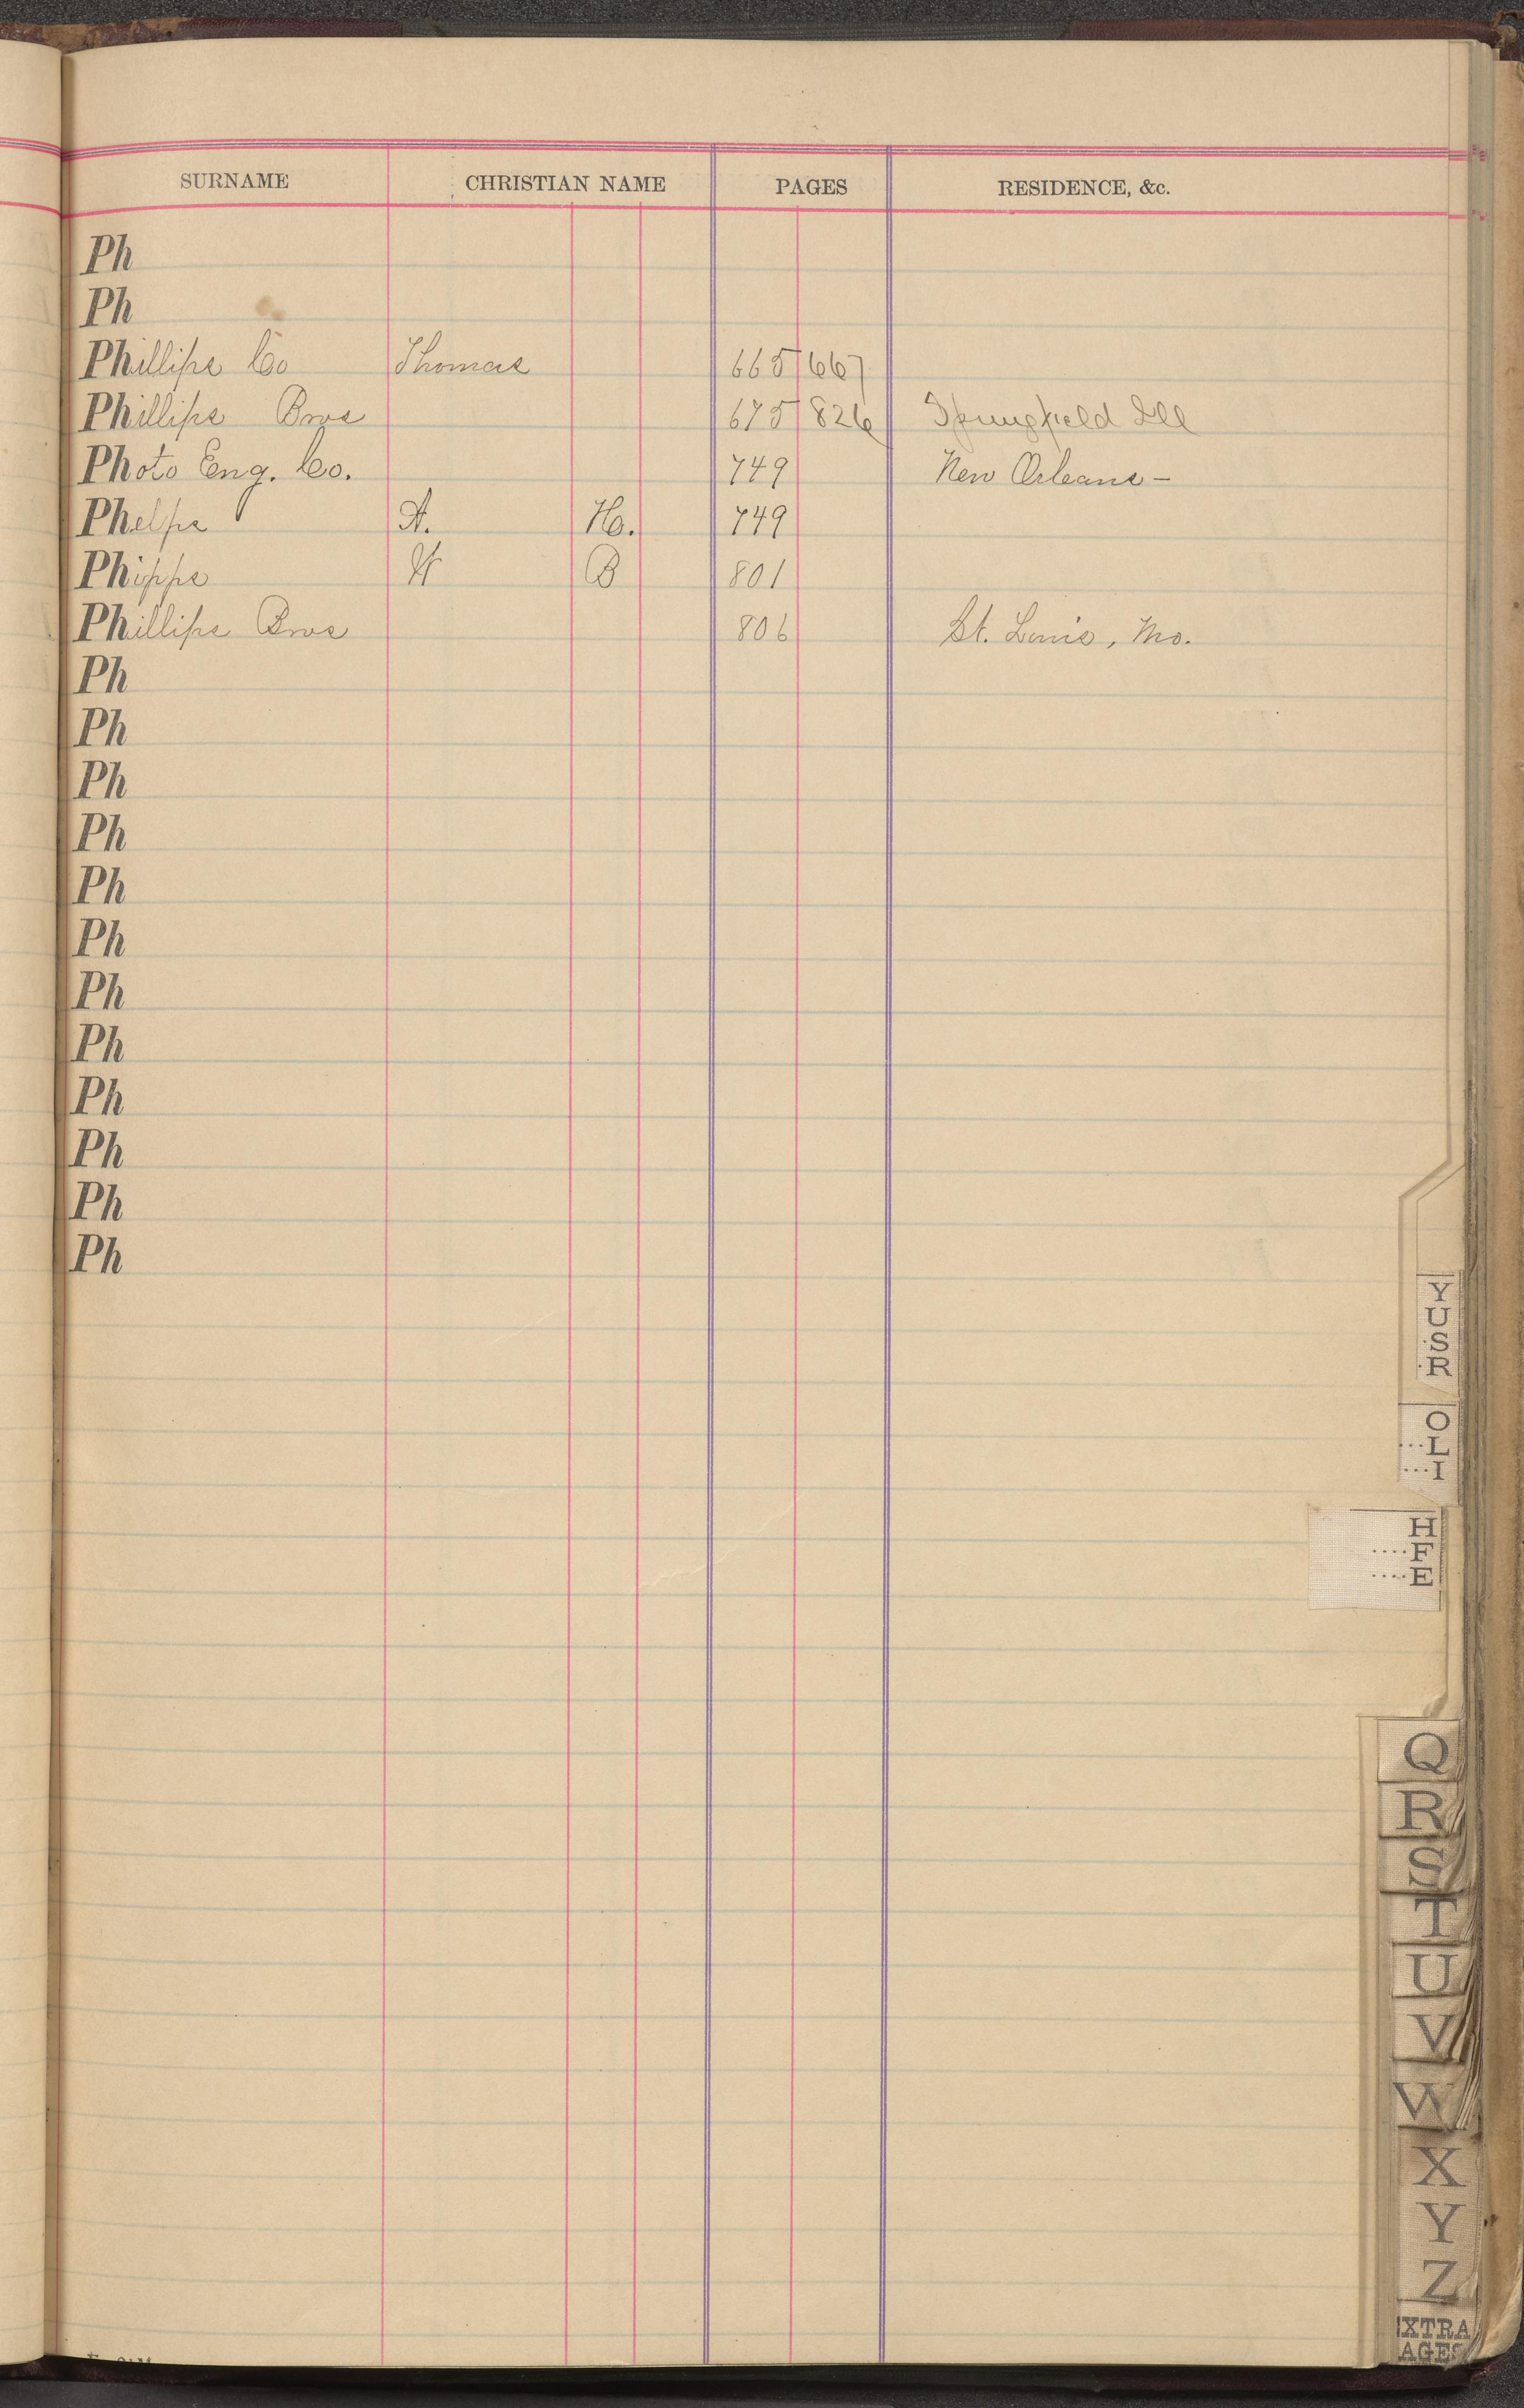 SURNAME CHRISTIAN NAME PAGES RESIDENCE, &c.
Ph
Ph
Phillips Co Thomas 665 667
Phillips Bros 675 826 Springfield Ill
Photo Eng. Co. 749 New Orleans –
Phelps A. H. 749
Phipps B 801
Phillips Bros 806 St. Louis, Mo.
Ph
Ph
Ph
Ph
Ph
Ph
Ph
Ph
Ph
Ph
Ph
Ph
Y
U
S
R
O
L
I
H
F
E
Q
R
S
T
U
V
W
X
Y
Z